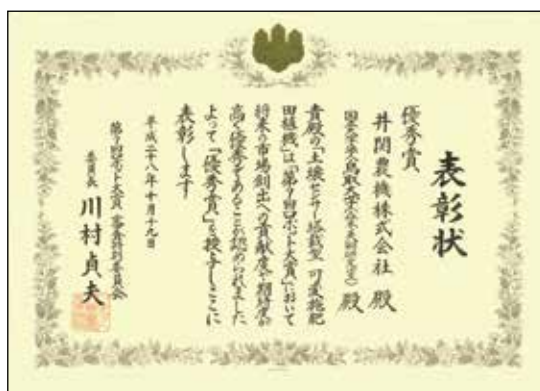 表彰状
優秀賞
井関農機株式会社 殿
国立大学法人鳥取大学 殿
貴殿の「土壌センサー搭載型 可変施肥
田植機」は「第7回ロボット大賞」において
将来の市場創出への貢献度や期待度が
高く優秀であることが認められました
よって「優秀賞」を授与しここに
表彰します
平成二十八年十月十九日
第7回ロボット大賞 審査特別委員会
委員長 川村貞夫